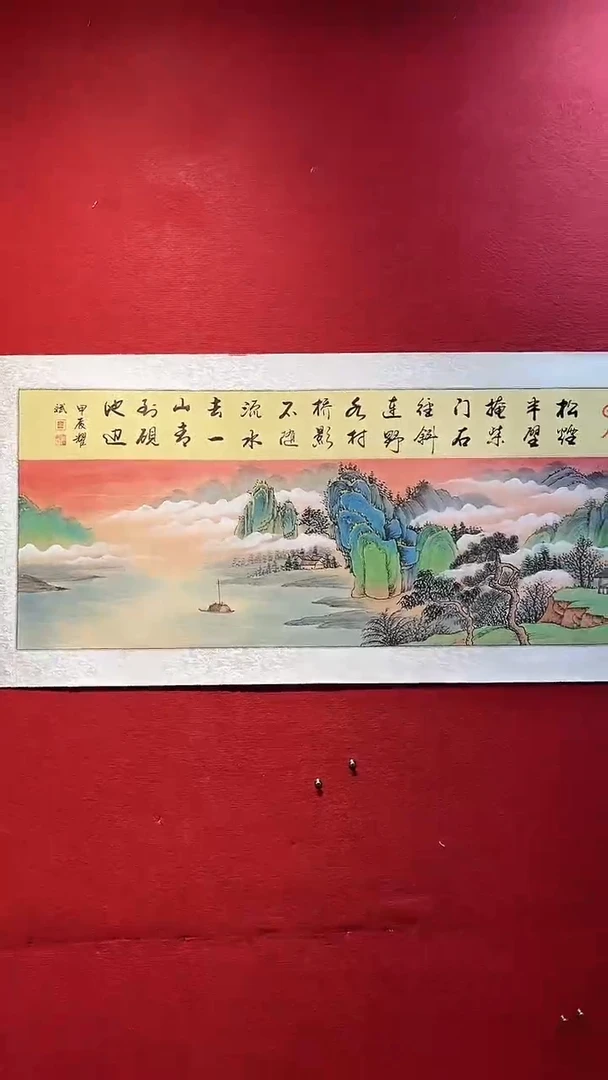 松煙
半壁
掩柴
门石
径斜
连野
水村
桥影
不随
流水
去一
山青
到砚
池边
甲辰耀
斌